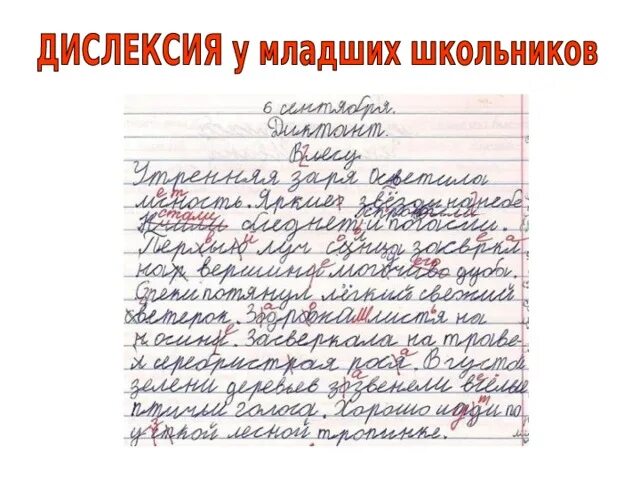 ДИСЛЕКСИЯ у младших школьников
6 сентября.
Диктант.
В лесу.
Утренняя заря осветила
мность. Яркие звёзды на небе
бледнеть и погасли.
Перхый луч сонца засверкл
на к вершине могочиво дуба.
С реки потянул лёгкий свежий
ветерок. листья на
носине. Засверкала на траве
я серебристрая роса. В густо
зелени деревьев зазвенели
птичьи голоса. Хорошо идди по
уской лесной тропинке.